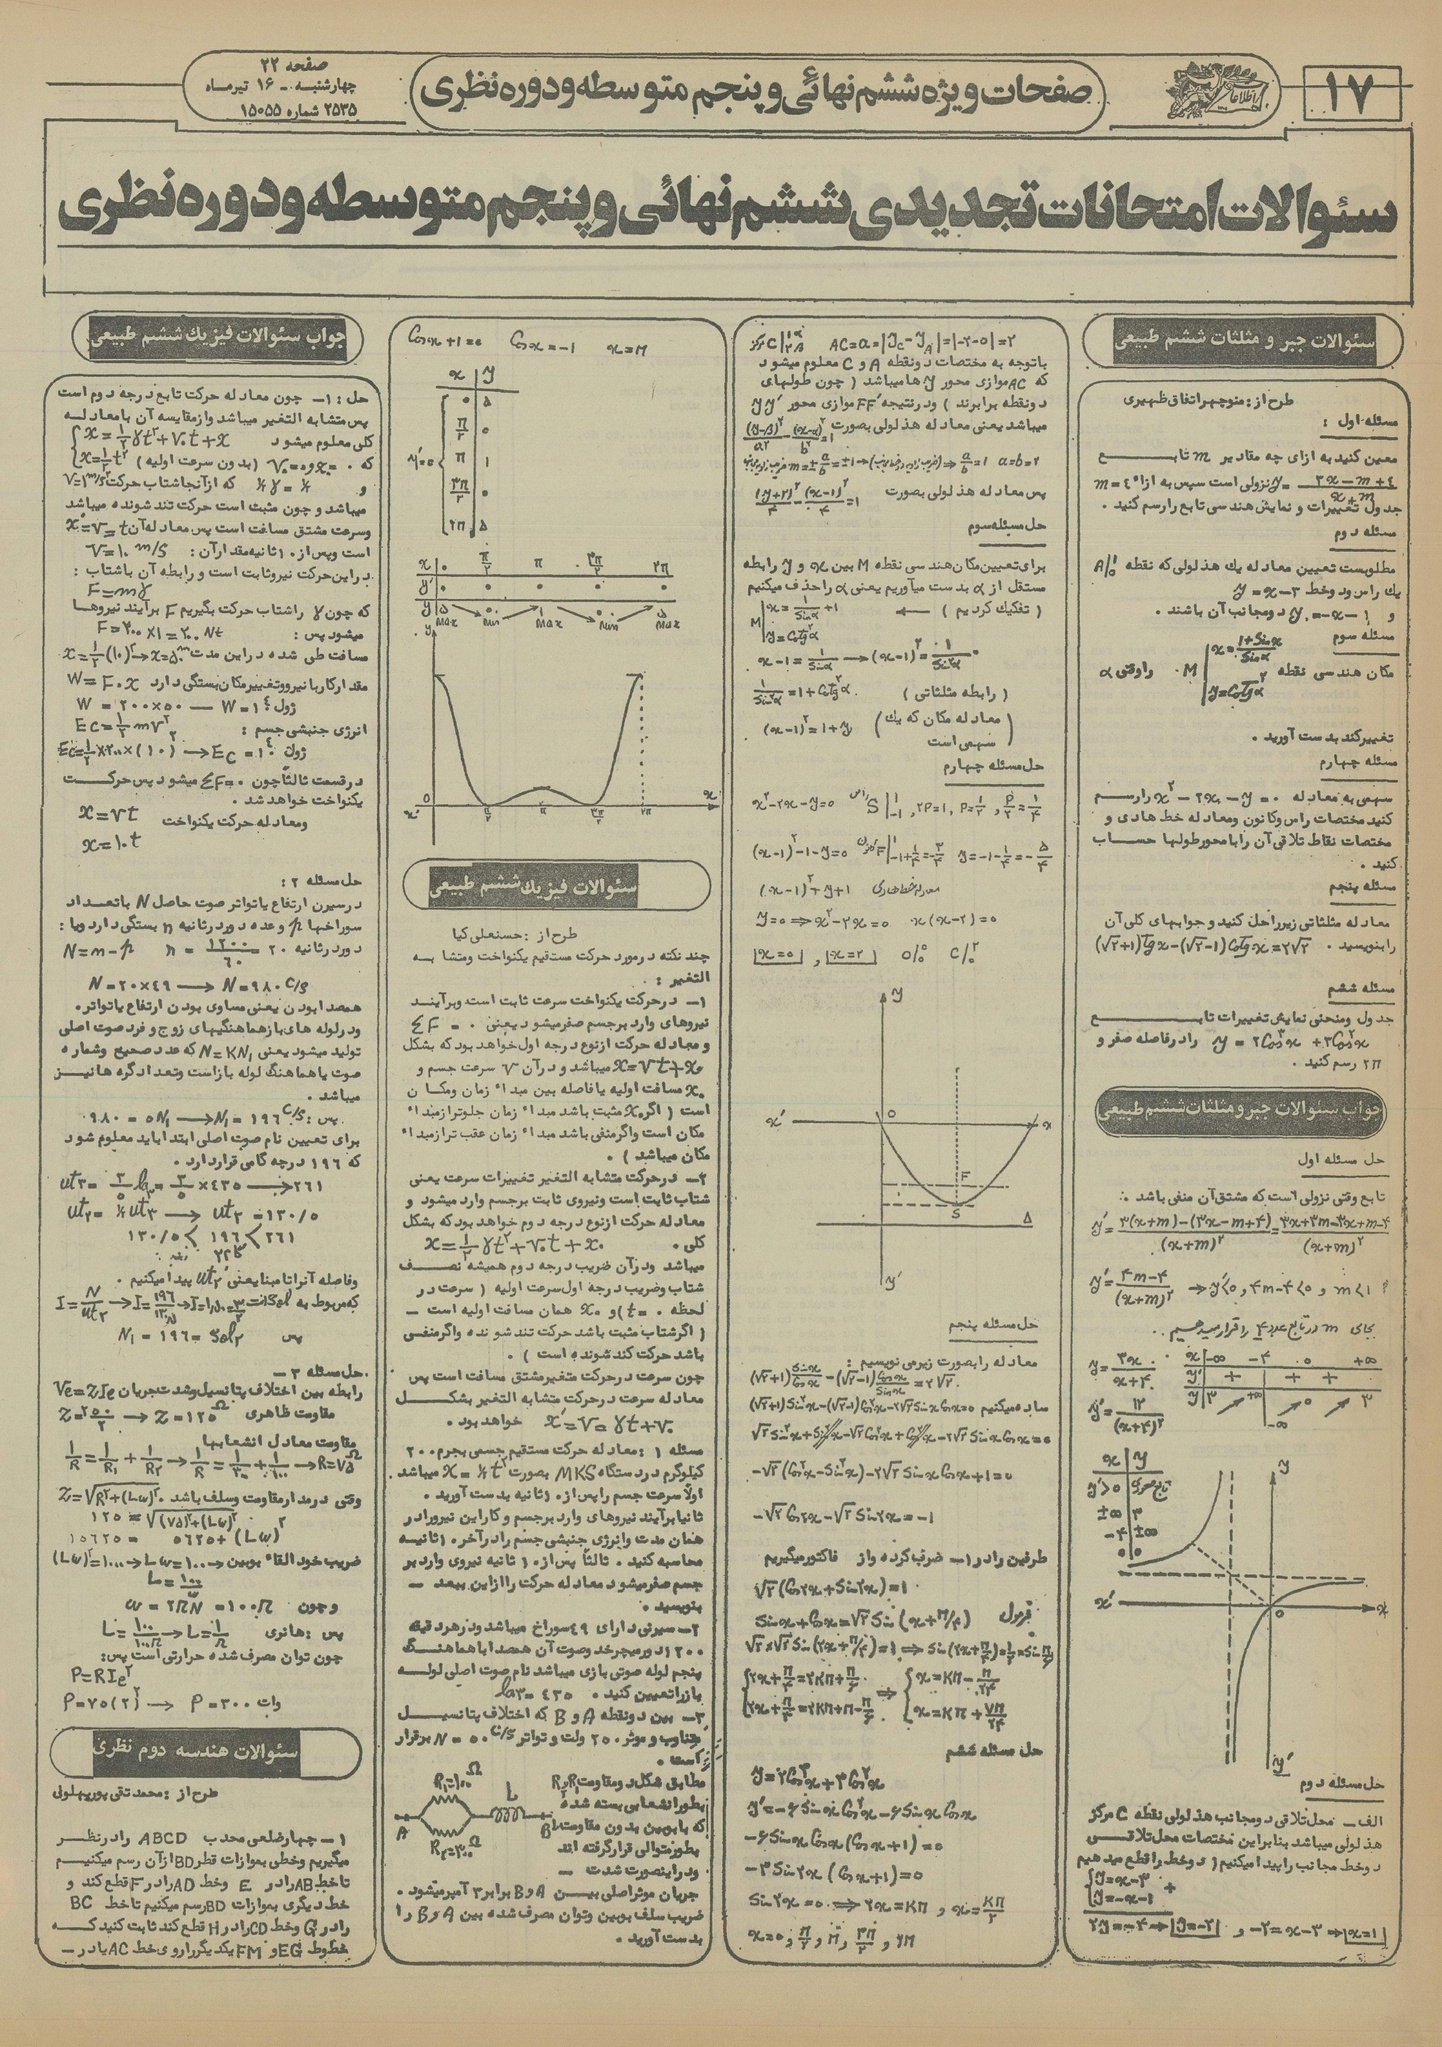 ۱۷
اطلاعات
صفحات ویژه ششم نهائی و پنجم متوسطه و دوره نظری
صفحه ۲۲
چهارشنبه ـ ۱۶ تیرماه
۲۵۳۵ شماره ۱۵۰۵۵
سئوالات امتحانات تجدیدی ششم نهائی و پنجم متوسطه و دوره نظری
سئوالات جبر و مثلثات ششم طبیعی
طرح از : منوچهر اتفاق ظهیری
مسئله اول :
معین کنید به ازای چه مقادیر m تابع
y = (۳x − m + ٤)/(x + m) نزولی است سپس به ازاء m = ٤
جدول تغییرات و نمایش هندسی تابع را رسم کنید .
مسئله دوم
مطلوبست تعیین معادله یك هذلولی که نقطه A |۱ ۰
یك راس و دو خط y = x − ۳
و y = −x − ۱ دو مجانب آن باشند .
مسئله سوم
مکان هندسی نقطه M | x = (۱+Sinα)/Sinα , y = Cotg²α را وقتی α
تغییر کند بدست آورید .
مسئله چهارم
سهمی به معادله x² − ۲x − y = ۰ را رسم
کنید مختصات راس و کانون و معادله خط هادی و
مختصات نقاط تلاقی آن را با محور طولها حساب
کنید .
مسئله پنجم
معادله مثلثاتی زیر را حل کنید و جوابهای کلی آن
را بنویسید . (√۲+۱)tgx − (√۲−۱)Cotgx = ۲√۲
مسئله ششم
جدول و منحنی نمایش تغییرات تابع
y = ۲Cos³x + ۳Cos²x را در فاصله صفر و
۲π رسم کنید .
جواب سئوالات جبر و مثلثات ششم طبیعی
حل مسئله اول
تابع وقتی نزولی است که مشتق آن منفی باشد .
y' = (۳(x+m) − (۳x−m+۴))/(x+m)² = (۳x+۳m−۳x+m−۴)/(x+m)²
y' = (۴m−۴)/(x+m)² ⇒ y' < ۰ , ۴m−۴ < ۰ و m < ۱
بجای m در تابع عدد ۴ را قرار میدهیم .
y = ۳x/(x+۴)
y' = ۱۲/(x+۴)²
x | −∞ −۴ ۰ +∞
y' | + + +
y | ۳ +∞ −∞ ۰ ۳
x | y
y' > ۰ تابع صعودی
±∞ | ۳
−۴ | ±∞
۰ | ۰
y
x' o x
y'
حل مسئله دوم
الف ـ محل تلاقی دو مجانب هذلولی نقطه C مرکز
هذلولی میباشد بنابراین مختصات محل تلاقی
دو خط مجانب را پیدا میکنیم ( دو خط را قطع میدهیم
y = x − ۳
y = −x − ۱ +
۲y = −۴ ⇒ y = −۲ و −۲ = x − ۳ ⇒ x = ۱
AC = a = |yC − yA| = |−۲ − ۰| = ۲
با توجه به مختصات دو نقطه A و C معلوم میشود
که AC موازی محور y ها میباشد ( چون طولهای
دو نقطه برابرند ) و در نتیجه FF' موازی محور yy'
میباشد یعنی معادله هذلولی بصورت (y−β)²/a² − (x−α)²/b² = ۱
m = ±a/b = ±۱ ⇒ a/b = ۱ a = b = ۲
پس معادله هذلولی بصورت (y+۲)²/۴ − (x−۱)²/۴ = ۱
حل مسئله سوم
برای تعیین مکان هندسی نقطه M بین x و y رابطه
مستقل از α بدست میآوریم یعنی α را حذف میکنیم
( تفکیك کردیم ) ← M | x = ۱/Sinα + ۱ , y = Cotg²α
x − ۱ = ۱/Sinα → (x−۱)² = ۱/Sin²α
( رابطه مثلثاتی ) ۱/Sin²α = ۱ + Cotg²α
( معادله مکان که یك سهمی است ) (x−۱)² = ۱ + y
حل مسئله چهارم
x² − ۲x − y = ۰ راس S |۱ −۱ , ۲P = ۱ , P = ۱/۲ , P/۲ = ۱/۴
(x−۱)² − ۱ − y = ۰ کانون F |۱ −۱+۱/۴ = −۳/۴ y = −۱ − ۱/۴ = −۵/۴
(x−۱)² = y + ۱ معادله خط هادی
y = ۰ ⇒ x² − ۲x = ۰ x(x−۲) = ۰
x = ۰ , x = ۲ O |۰ ۰ C |۲ ۰
y
x' o x
F
S Δ
y'
حل مسئله پنجم
معادله را بصورت زیر می نویسیم :
(√۲+۱) Sinx/Cosx − (√۲−۱) Cosx/Sinx = ۲√۲
ساده میکنیم (√۲+۱)Sin²x − (√۲−۱)Cos²x − ۲√۲ Sinx Cosx = ۰
√۲Sin²x + Sin²x − √۲Cos²x + Cos²x − ۲√۲ Sinx Cosx = ۰
−√۲(Cos²x − Sin²x) − ۲√۲ Sinx Cosx + ۱ = ۰
−√۲ Cos۲x − √۲ Sin۲x = −۱
طرفین را در ۱− ضرب کرده و از فاکتور میگیریم
√۲(Cos۲x + Sin۲x) = ۱
فرمول Sinx + Cosx = √۲ Sin(x + π/۴)
√۲ × √۲ Sin(۲x + π/۴) = ۱ ⇒ Sin(۲x + π/۴) = ۱/۲ = Sin π/۶
۲x + π/۴ = ۲Kπ + π/۶ ⇒ x = Kπ − π/۲۴
۲x + π/۴ = ۲Kπ + π − π/۶ x = Kπ + ۷π/۲۴
حل مسئله ششم
y = ۲Cos³x + ۳Cos²x
y' = −۶SinxCos²x − ۶SinxCosx
−۶SinxCosx(Cosx + ۱) = ۰
−۳Sin۲x(Cosx + ۱) = ۰
Sin۲x = ۰ ⇒ ۲x = Kπ , x = Kπ/۲
x = ۰ , π/۲ , π , ۳π/۲ , ۲π
Cosx + ۱ = ۰ Cosx = −۱ x = π
x | y
۰ | ۵
π/۲ | ۰
y' = ۰ π | ۱
۳π/۲ | ۰
۲π | ۵
x | ۰ π/۲ π ۳π/۲ ۲π
y' | ۰ ۰ ۰ ۰ ۰
y | ۵ ۰ ۱ ۰ ۵
Max Min Max Min Max
y
x' O π/۲ π ۳π/۲ ۲π x
سئوالات فیزیك ششم طبیعی
طرح از : حسنعلی کیا
چند نکته در مورد حرکت مستقیم یکنواخت و متشابه
التغیر :
۱ـ در حرکت یکنواخت سرعت ثابت است و برآیند
نیروهای وارد بر جسم صفر میشود یعنی ΣF = ۰
و معادله حرکت از نوع درجه اول خواهد بود که بشکل
x = Vt + x۰ میباشد و در آن V سرعت جسم و
x۰ مسافت اولیه یا فاصله بین مبداء زمان و مکان
است ( اگر x۰ مثبت باشد مبداء زمان جلوتر از مبداء
مکان است و اگر منفی باشد مبداء زمان عقب تر از مبداء
مکان میباشد ) .
۲ـ در حرکت متشابه التغیر تغییرات سرعت یعنی
شتاب ثابت است و نیروی ثابت بر جسم وارد میشود و
معادله حرکت از نوع درجه دوم خواهد بود که بشکل
کلی x = ۱/۲ γt² + V۰t + x۰
میباشد و در آن ضریب درجه دوم همیشه نصف
شتاب و ضریب درجه اول سرعت اولیه ( سرعت در
لحظه t = ۰ ) و x۰ همان مسافت اولیه است ـ
( اگر شتاب مثبت باشد حرکت تند شونده و اگر منفی
باشد حرکت کند شونده است ) .
چون سرعت در حرکت متغیر مشتق مسافت است پس
معادله سرعت در حرکت متشابه التغیر بشکل
x' = V = γt + V۰ خواهد بود .
مسئله ۱ : معادله حرکت مستقیم جسمی بجرم ۲۰۰
کیلوگرم در دستگاه MKS بصورت x = ½t² میباشد
اولا سرعت جسم را پس از ۱۰ ثانیه بدست آورید .
ثانیا برآیند نیروهای وارد بر جسم و کار این نیرو را در
همان مدت و انرژی جنبشی جسم را در آخر ۱۰ ثانیه
محاسبه کنید . ثالثا پس از ۱۰ ثانیه نیروی وارد بر
جسم صفر میشود معادله حرکت را از این ببعد ـ
بنویسید .
۲ـ سیرنی دارای ٤۹ سوراخ میباشد و در هر دقیقه
۱۲۰۰ دور میچرخد و صوت آن همصدا با هماهنگ
پنجم لوله صوتی بازی میباشد نام صوت اصلی لوله
باز را تعیین کنید . la۳ = ٤۳۵
۳ـ بین دو نقطه A و B که اختلاف پتانسیل
متناوب و موثر ۲۵۰ ولت و تواتر N = ۵۰ C/S برقرار
است .
مطابق شکل دو مقاومت R۱ و R۲
بطور انشعابی بسته شده
که با بوبین بدون مقاومت
بطور متوالی قرار گرفته اند
و در اینصورت شدت ـ
جریان موثر اصلی بین A و B برابر ۲ آمپر میشود .
ضریب سلف بوبین و توان مصرف شده بین A و B را
بدست آورید .
R۱ = ۱۰۰ Ω
L
A B
R۲ = ۳۰۰ Ω
جواب سئوالات فیزیك ششم طبیعی
حل : ۱ـ چون معادله حرکت تابع درجه دوم است
پس متشابه التغیر میباشد و از مقایسه آن با معادله
کلی معلوم میشود x = ۱/۲ γt² + V۰t + x۰
که x۰ = ۰ و V۰ = ۰ ( بدون سرعت اولیه ) x = ۱/۲ t²
و ½γ = ½ که از آنجا شتاب حرکت γ = ۱ m/s²
میباشد و چون مثبت است حرکت تند شونده میباشد
و سرعت مشتق مسافت است پس معادله آن x' = V = t
است و پس از ۱۰ ثانیه مقدار آن : V = ۱۰ m/s
در این حرکت نیرو ثابت است و رابطه آن با شتاب :
F = mγ
که چون γ را شتاب حرکت بگیریم F برآیند نیروها
میشود پس : F = ۲۰۰ × ۱ = ۲۰۰ Nt
مسافت طی شده در این مدت x = ۱/۲ (۱۰)² → x = ۵۰ m
مقدار کار با نیرو و تغییر مکان بستگی دارد W = F.x
ژول W = ۲۰۰ × ۵۰ — W = ۱۰⁴
انرژی جنبشی جسم : Ec = ۱/۲ mV²
ژول Ec = ۱/۲ × ۲۰۰ × (۱۰)² → Ec = ۱۰⁴
در قسمت ثالثا چون ΣF = ۰ میشود پس حرکت
یکنواخت خواهد شد .
و معادله حرکت یکنواخت x = Vt
x = ۱۰t
حل مسئله ۲ :
در سیرن ارتفاع یا تواتر صوت حاصل N با تعداد
سوراخها p و عده دور در ثانیه n بستگی دارد و با :
دور در ثانیه ۲۰ n = ۱۲۰۰/۶۰ = N = n·p
N = ۲۰ × ٤۹ → N = ۹۸۰ C/S
همصدا بودن یعنی مساوی بودن ارتفاع یا تواتر .
و در لوله های باز هماهنگیهای زوج و فرد صوت اصلی
تولید میشود یعنی N = KN۱ که عدد صحیح و شماره
صوت یا هماهنگ لوله باز است و تعداد گره ها نیز
میباشد .
پس : ۹۸۰ = ۵N۱ → N۱ = ۱۹۶ C/S
برای تعیین نام صوت اصلی ابتدا باید معلوم شود
که ۱۹۶ در چه گامی قرار دارد .
ut۳ = ۳/۵ la۳ = ۳/۵ × ٤۳۵ → ۲۶۱
ut۲ = ½ ut۳ → ut۲ = ۱۳۰/۵
۱۳۰/۵ < ۱۹۶ < ۲۶۱
و فاصله آنرا تا مبنا یعنی ut۲ پیدا میکنیم .
I = N/ut۲ → I = ۱۹۶/۱۳۰/۵ → I = ۳/۲ که مربوط به Sol است
پس N۱ = ۱۹۶ = Sol۲
حل مسئله ۳ ـ
رابطه بین اختلاف پتانسیل و شدت جریان Ve = ZIe
مقاومت ظاهری Z = ۲۵۰/۲ → Z = ۱۲۵ Ω
مقاومت معادل انشعابها
۱/R = ۱/R۱ + ۱/R۲ → ۱/R = ۱/۳۰۰ + ۱/۱۰۰ → R = ۷۵ Ω
وقتی در مدار مقاومت و سلف باشد . Z = √R² + (Lω)²
۱۲۵ = √(۷۵)² + (Lω)²
۱۵۶۲۵ = ۵۶۲۵ + (Lω)²
ضریب خود القاء بوبین (Lω)² = ۱۰۰۰۰ → Lω = ۱۰۰
L = ۱۰۰/ω
و چون ω = ۲πN = ۱۰۰π
پس : هانری L = ۱۰۰/۱۰۰π → L = ۱/π
چون توان مصرف شده حرارتی است پس :
P = RIe²
وات P = ۷۵(۲)² → P = ۳۰۰
سئوالات هندسه دوم نظری
طرح از : محمد تقی پوربهلولی
۱ـ چهار ضلعی محدب ABCD را در نظر
میگیریم و خطی بموازات قطر BD از آن رسم میکنیم
تا خط AB را در E و خط AD را در F قطع کند و
خط دیگری بموازات BD رسم میکنیم تا خط BC
را در G و خط CD را در H قطع کند ثابت کنید که
خطوط EG و FM یکدیگر را روی خط AC یا در ـ